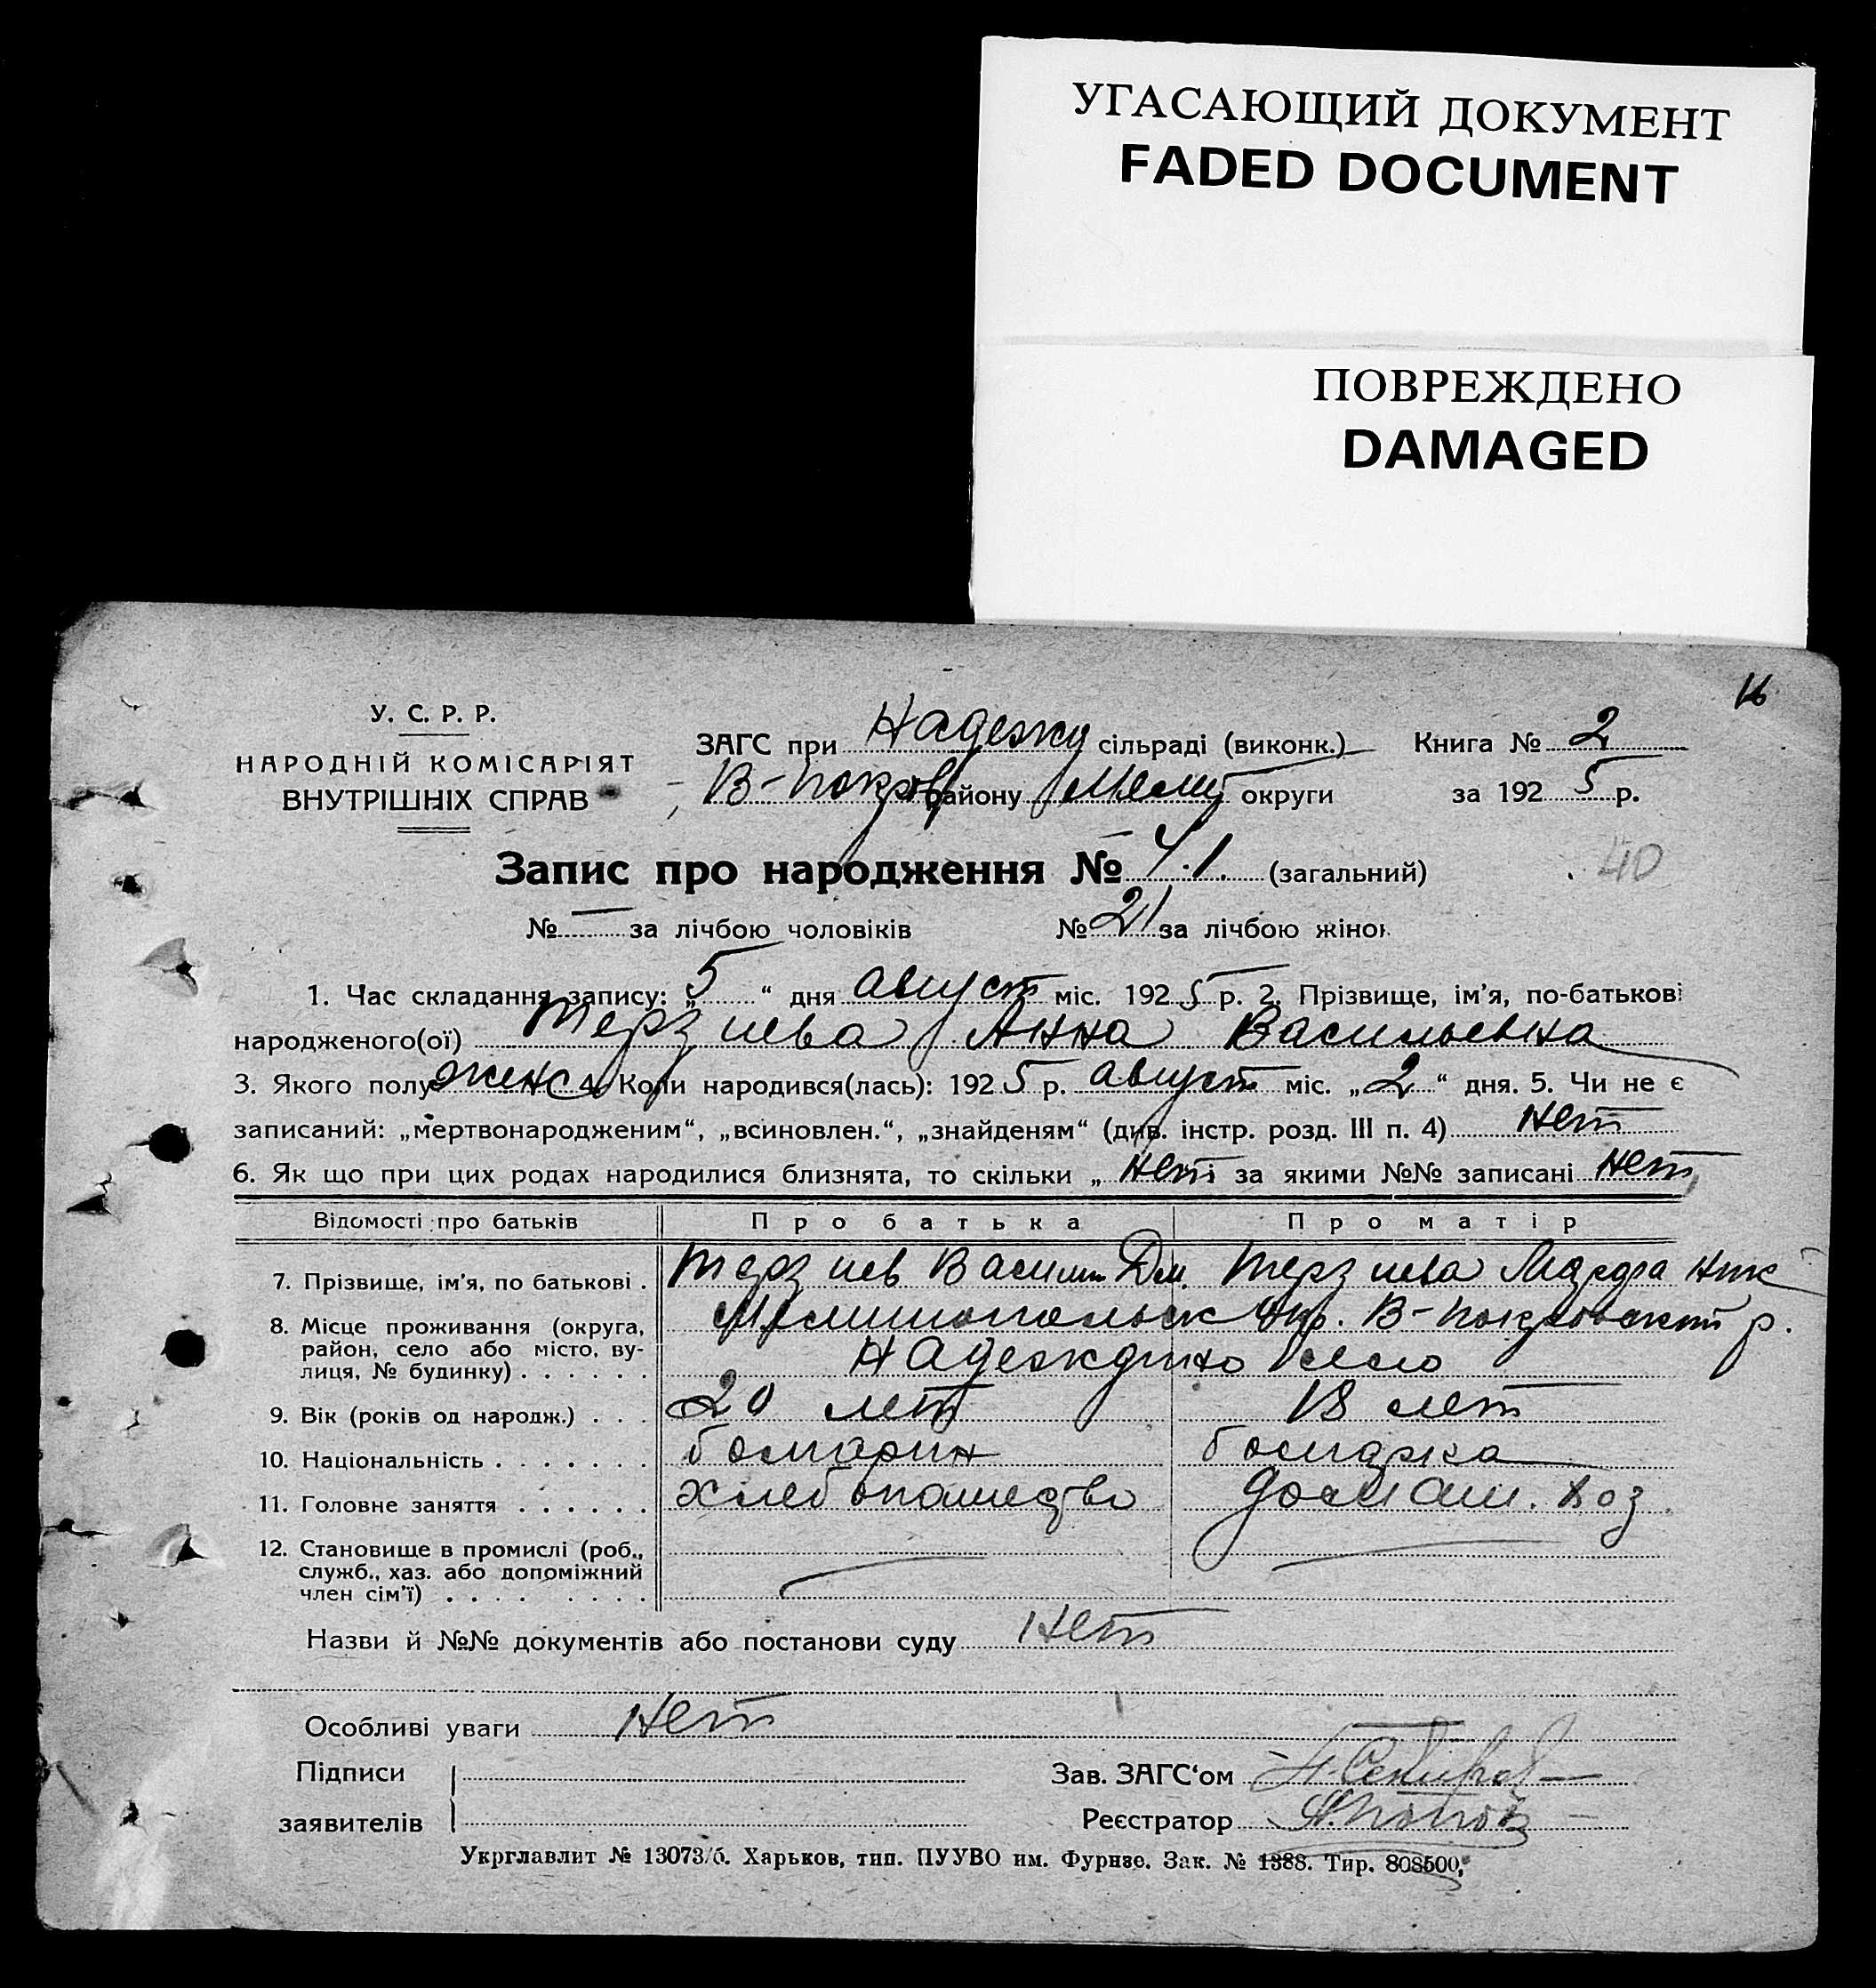 УГАСАЮЩИЙ ДОКУМЕНТ
FADED DOCUMENT
ПОВРЕЖДЕНО
DAMAGED
16
У. С. Р. Р.
НАРОДНІЙ КОМІСАРІЯТ
ВНУТРІШНІХ СПРАВ
ЗАГС при Надежд сільраді (виконк.) Книга № 2
В-Покров району Мелит округи за 1925 р.
Запис про народження № 41. (загальний) 40
№ — за лічбою чоловіків № 21 за лічбою жінок
1. Час складання запису: „5“ дня август міс. 1925 р. 2. Прізвище, ім'я, по-батькові
народженого(ої) Терзиева Анна Васильевна
3. Якого полу женс 4. Коли народився(лась): 1925 р. август міс. „2“ дня. 5. Чи не є
записаний: „мертвонародженим“, „всиновлен.“, „знайденям“ (див. інстр. розд. III п. 4) нет
6. Як що при цих родах народилися близнята, то скільки „ нет і за якими №№ записані нет
Відомості про батьків Про батька Про матір
7. Прізвище, ім'я, по батькові . Терзиев Васили Дм. Терзиева Марфа Ник
8. Місце проживання (округа, Мелитопольск Окр. В-Покровский р.
район, село або місто, ву-
лиця, № будинку) . . . . . . Надеждино село
9. Вік (років од народж.) . . . 20 лет 18 лет
10. Національність . . . . . . . болгарин болгарка
11. Головне заняття . . . . . . хлебопашество домаш. хоз.
12. Становище в промислі (роб.,
служб., хаз. або допоміжний
член сім'ї) . . . . . . . .
Назви й №№ документів або постанови суду нет
Особливі уваги нет
Підписи Зав. ЗАГС'ом
заявителів Реєстратор Попов
Укрглавлит № 13073/б. Харьков, тип. ПУУВО им. Фурнзе. Зак. № 1388. Тир. 808500,